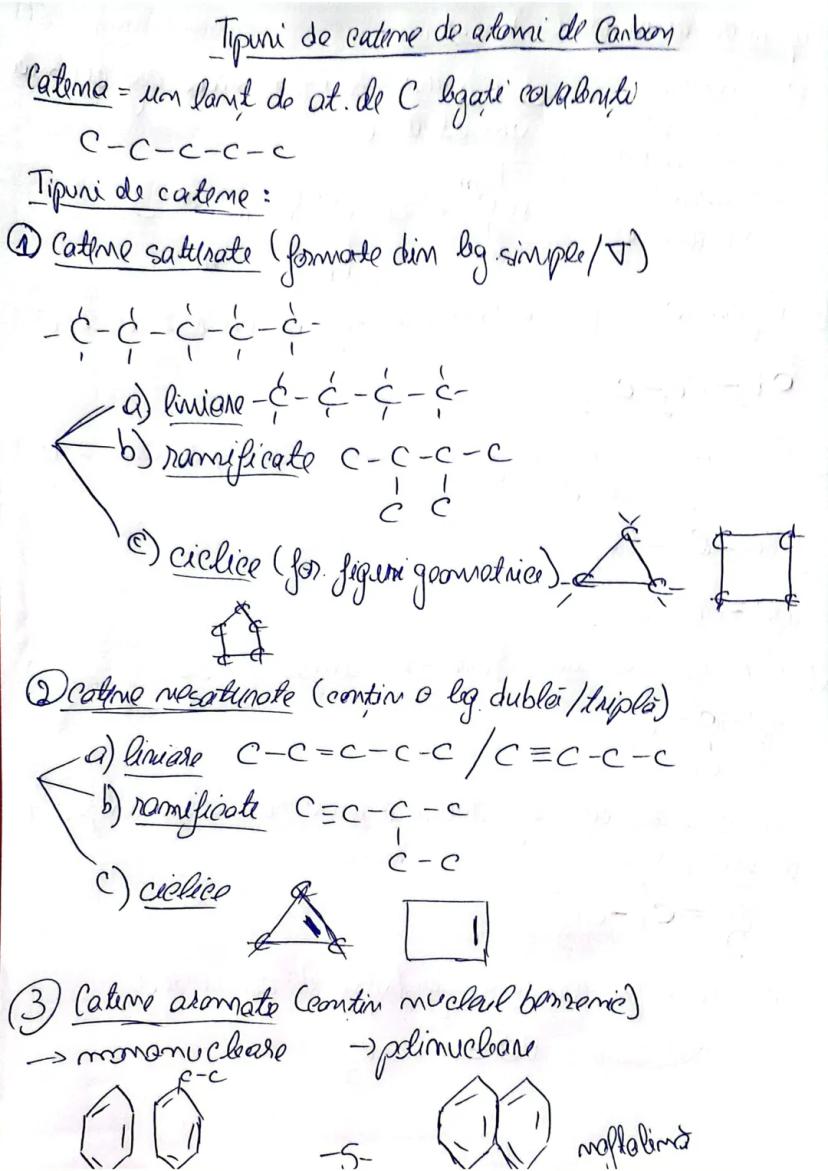 Tipuri de catene de atomi de Carbon
Catena = un lanț de at. de C legați covalenți
C-C-C-C-C
Tipuri de catene:
① Catene saturate (formate din leg. simple/σ)
-C-C-C-C-C-
a) liniare -C-C-C-C-
b) ramificate C-C-C-C
C C
c) ciclice (for. figuri geometrice)
② catene nesaturate (conțin o leg. dublă/triplă)
a) liniare C-C=C-C-C / C≡C-C-C
b) ramificate C≡C-C-C
C-C
c) ciclice
③ Catene aromate (contin nucleul benzenic)
→ mononucleare → polinucleare
C-C
naftalină
-5-